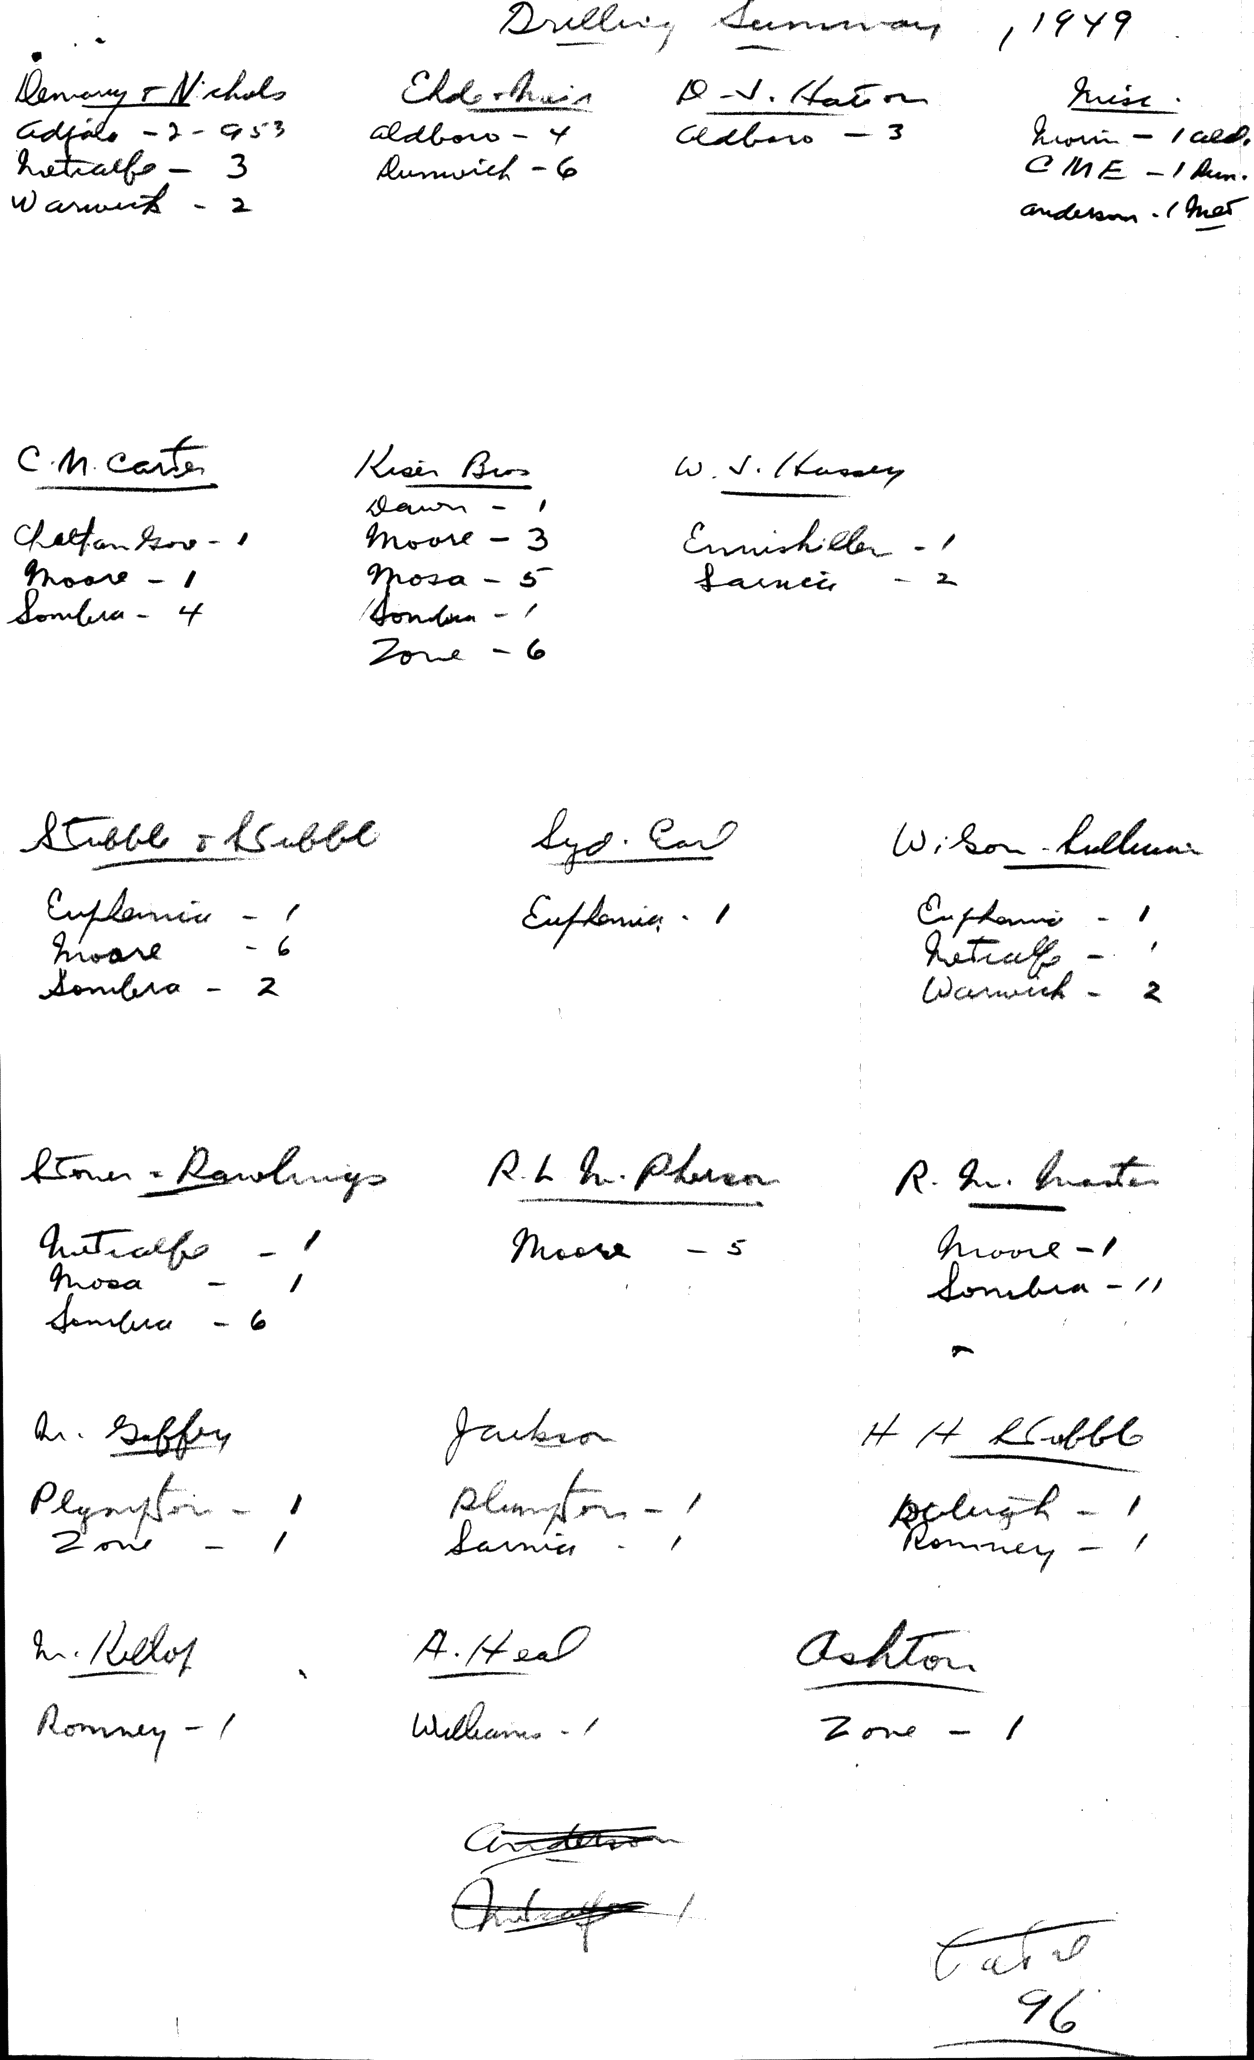 Drilling Summary, 1949
Demary & Nichols
Adjala - 2 - 953
Metcalfe - 3
Warwick - 2
Aldboro - 4
Dunwich - 6
Aldboro - 3
Misc.
- 1 Ald.
CME - 1 Dun.
Anderson - 1 Met
C. M. Carter
Moore - 1
Sombra - 4
Kiser Bros
Dawn - 1
Moore - 3
Mosa - 5
Sombra - 1
Zone - 6
W. J. Hussey
Enniskillen - 1
Sarnia - 2
Stubbl & Stubbl
Euphemia - 1
Moore - 6
Sombra - 2
Syd. Earl
Euphemia - 1
Wilson - Sullivan
Euphemia - 1
Metcalfe - 1
Warwick - 2
Stoner - Rawlings
Metcalfe - 1
Mosa - 1
Sombra - 6
R. L. McPherson
Moore - 5
R. M. Master
Moore - 1
Sombra - 11
Mc. Guffey
Plympton - 1
Zone - 1
Jackson
Plympton - 1
Sarnia - 1
H H Stubbl
Raleigh - 1
Romney - 1
McKillop
Romney - 1
A. Heal
Williams - 1
Ashton
Zone - 1
Anderson
Metcalfe 1
Total
96